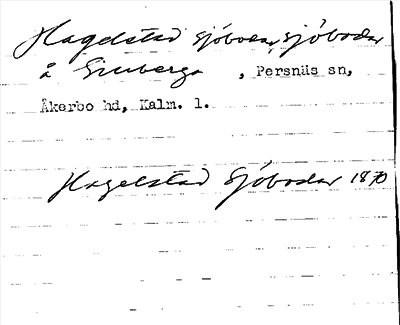 Hagelstad sjöbodar, sjöbodar
å Sinberga, Persnäs sn,
Åkerbo hd, Kalm. l.
Hagelstad Sjöbodar 1870